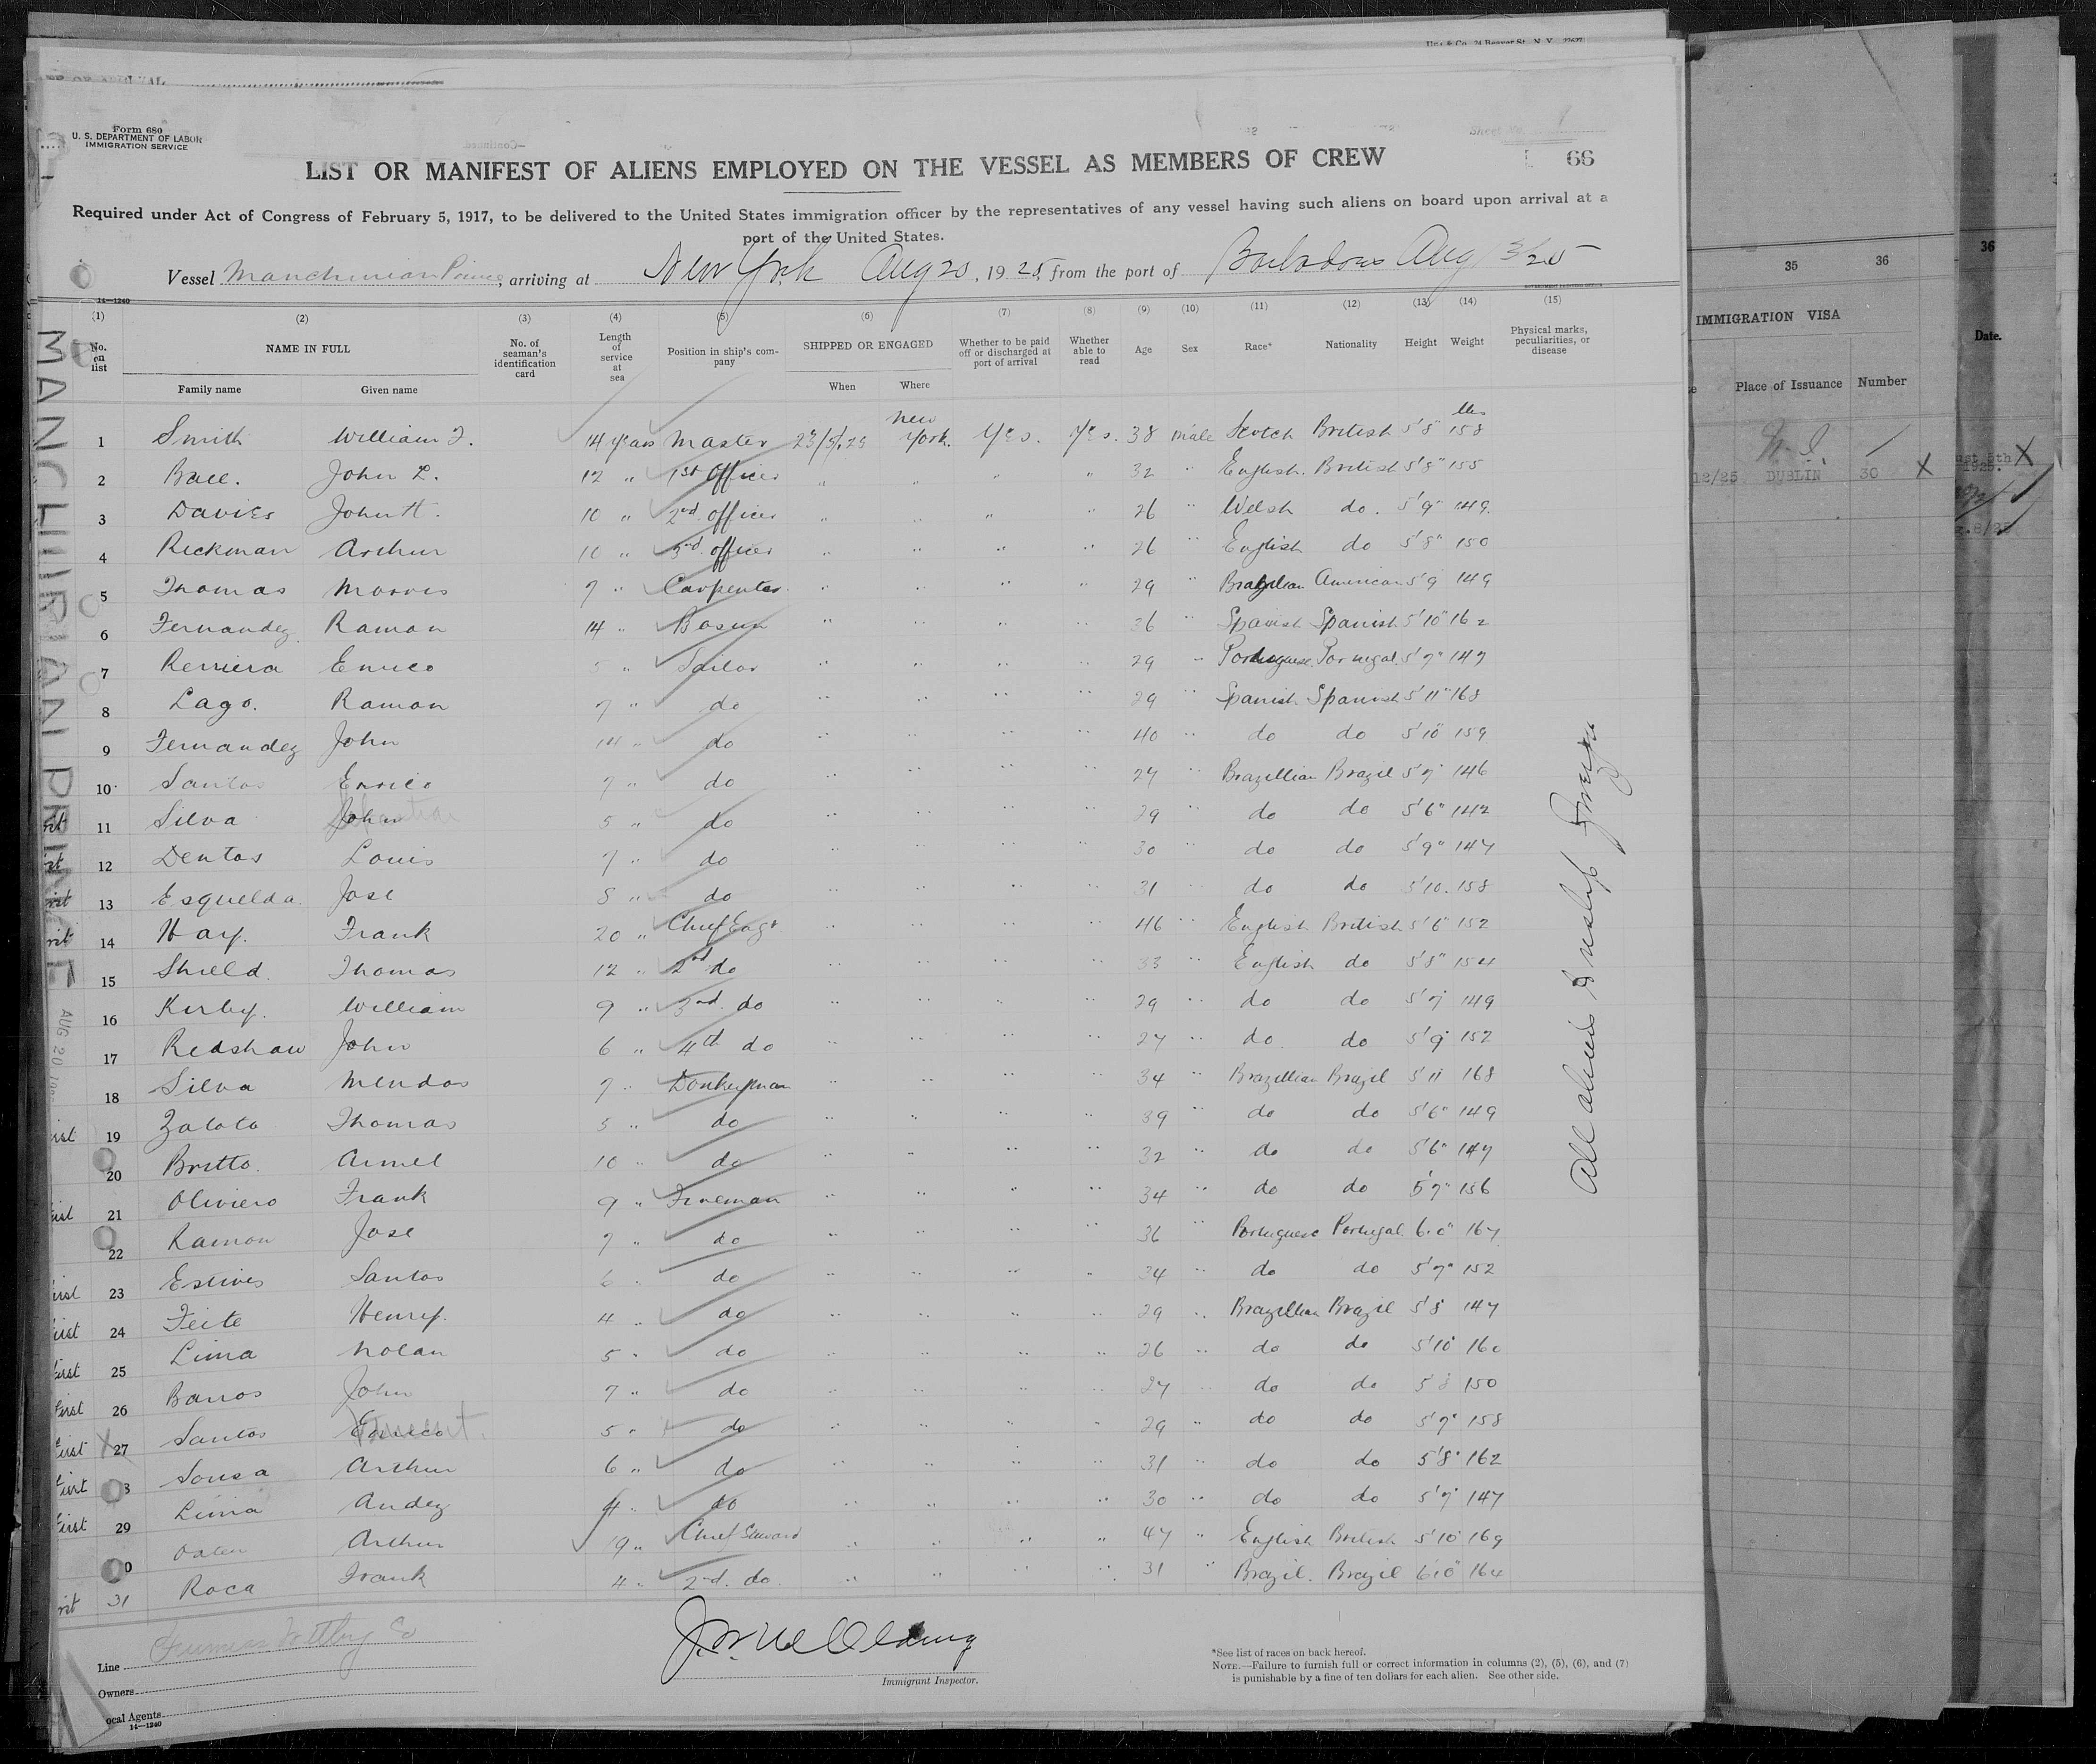 Form 680
U. S. DEPARTMENT OF LABOR
IMMIGRATION SERVICE
LIST OR MANIFEST OF ALIENS EMPLOYED ON THE VESSEL AS MEMBERS OF CREW
66
Required under Act of Congress of February 5, 1917, to be delivered to the United States immigration officer by the representatives of any vessel having such aliens on board upon arrival at a
port of the United States.
Vessel Manchurian Prince, arriving at New York Aug 20, 1925, from the port of Barbados Aug 13/25
14—1240
(1) (2) (3) (4) (5) (6) (7) (8) (9) (10) (11) (12) (13) (14) (15)
No. on list NAME IN FULL No. of seaman's identification card Length of service at sea Position in ship's company SHIPPED OR ENGAGED Whether to be paid off or discharged at port of arrival Whether able to read Age Sex Race* Nationality Height Weight Physical marks, peculiarities, or disease
Family name Given name When Where
1 Smith William J. 14 years Master 23/5/25 New York. Yes. Yes. 38 Male Scotch British 5'8" 158 lbs
2 John L. 12 " 1st Officer " " " " 32 " English. British 5'8" 155
3 Davies John H. 10 " 2nd officer " " " " 26 " Welsh do. 5'9" 149
4 Rickman Arthur 10 " 3rd officer " " " " 26 " English do 5'8" 150
5 Thomas Morris 7 " Carpenter " " " " 29 " Brazilian American 5'9 149
6 Fernandez Ramon 14 " Bosun " " " " 36 " Spanish Spanish 5'10" 162
7 Enrico 5 " Sailor " " " " 29 " Portuguese Portugal 5'7" 147
8 Lago. Ramon 7 " do " " " " 29 " Spanish Spanish 5'11" 168
9 Fernandez John 14 " do " " " " 40 " do do 5'10" 159
10 Santos Enrico 7 " do " " " " 27 " Brazillian Brazil 5'7" 146
11 Silva John 5 " do " " " " 29 do do 5'6" 142
12 Dentas Louis 7 " do " " " " 30 do do 5'9" 147
13 Esquelda Jose 8 " do " " " " 31 do do 5'10. 158
14 Hay. Frank 20 " Chief Engr " " " " 46 " English British 5'6" 152
15 Shield Thomas 12 " 2nd do " " " " 33 " English do 5'8" 154
16 Kirby. William 9 " 3rd do " " " " 29 " do do 5'7" 149
17 Redshaw John 6 " 4th do " " " " 27 " do do 5'9" 152
18 Silva Mendos 7 " Donkeyman " " " " 34 " Brazillian Brazil 5'11 168
19 Zalota Thomas 5 " do " " " " 39 " do do 5'6" 149
20 Britto. 10 " do " " " " 32 " do do 5'6" 147
21 Oliviero Frank 9 " Fireman " " " " 34 " do do 5'7" 156
22 Ramon Jose 7 " do " " " " 36 " Portuguese Portugal 6.0" 167
23 Estives Santos 6 " do " " " " 34 " do do 5'7" 152
24 Feite Henry. 4 " do " " " " 29 " Brazillian Brazil 5'8 147
25 Lima Nolan 5 " do " " " " 26 " do do 5'10" 160
26 Barros John 7 " do " " " " 27 do do 5'8 150
27 Santos 5 " do " " " " 29 " do do 5'7" 158
Sousa Arthur 6 " do " " " " 31 " do do 5'8" 162
29 Lima Andez 4 " do " " " " 30 " do do 5'7" 147
Arthur 19 " Chief Steward " " " " 47 " English British 5'10" 169
31 Roca Frank 4 " 2nd. do " " " " 31 " Brazil. Brazil 6'0" 164
MANCHURIAN PRINCE AUG 20
Line Furness Withy Co
Owners
ocal Agents
14—1240
Immigrant Inspector.
*See list of races on back hereof.
NOTE.—Failure to furnish full or correct information in columns (2), (5), (6), and (7)
is punishable by a fine of ten dollars for each alien. See other side.
35 36
IMMIGRATION VISA
Place of Issuance Number
12/25 DUBLIN 30 X
36
Date.
ust 5th
1925. X